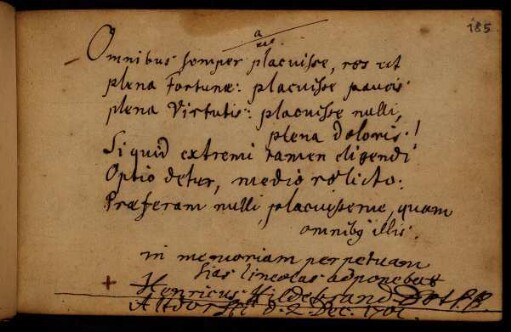 185
Omnibus semper placuisse, res est
plena Fortunæ: placuisse paucis
plena Virtutis: placuisse nulli,
plena doloris!
Si quid extremi tamen eligendi
Optio detur, medio relicto:
Præferam nulli placuisse me, quam
omnibq illis.
in memoriam perpetuam
has lineolas adponebat
+ Henricus Hildebrand D et P.P.
Altdorffi d. 2 Dec. 1701